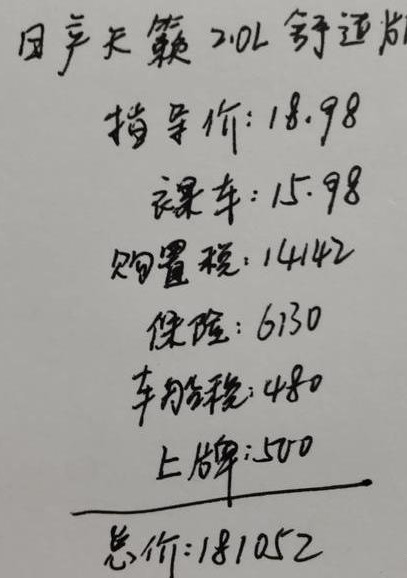 日产天籁 2.0L 舒适版
指导价:18.98
裸车:15.98
购置税:14142
保险:6130
车船税:480
上牌:500
总价:181052